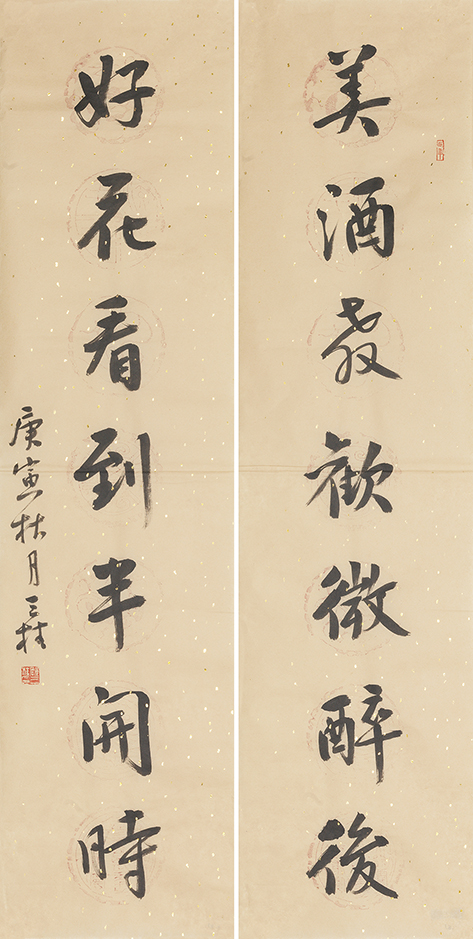 美酒教歡微醉後
好花看到半開時
庚寅 月三